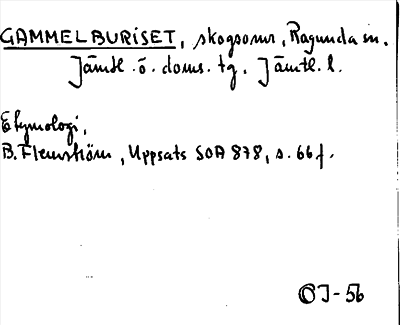 GAMMELBURISET, skogsomr, Ragunda sn.
Jämtl. ö. doms. tg, Jämtl. l.
Etymologi,
B. Flemström, Uppsats SOA 878, s. 66 f.
OJ-56